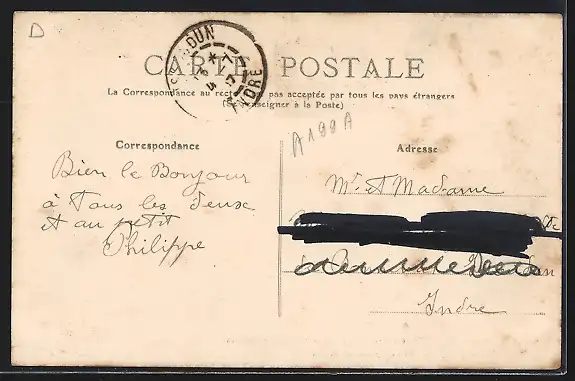 D
CARTE POSTALE
La Correspondance au recto pas acceptée par tous les pays étrangers
(Se renseigner à la Poste)
DUN
INDRE
A199A
Correspondance
Adresse
Bien le Bonjour
à Tous les deux
et au petit
Philippe
Mr et Madame
Indre